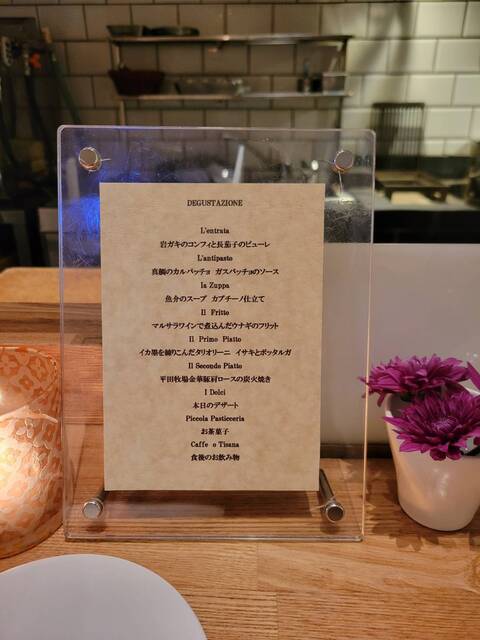 DEGUSTAZIONE
L'entrata
岩ガキのコンフィと長茄子のピューレ
L'antipasto
真鯛のカルパッチョ ガスパッチョのソース
la Zuppa
魚介のスープ カプチーノ仕立て
Il Fritto
マルサラワインで煮込んだウナギのフリット
Il Primo Piatto
イカ墨を練りこんだタリオリーニ イサキとボッタルガ
Il Secondo Piatto
平田牧場金華豚肩ロースの炭火焼き
I Dolci
本日のデザート
Piccola Pasticceria
お茶菓子
Caffe o Tisana
食後のお飲み物